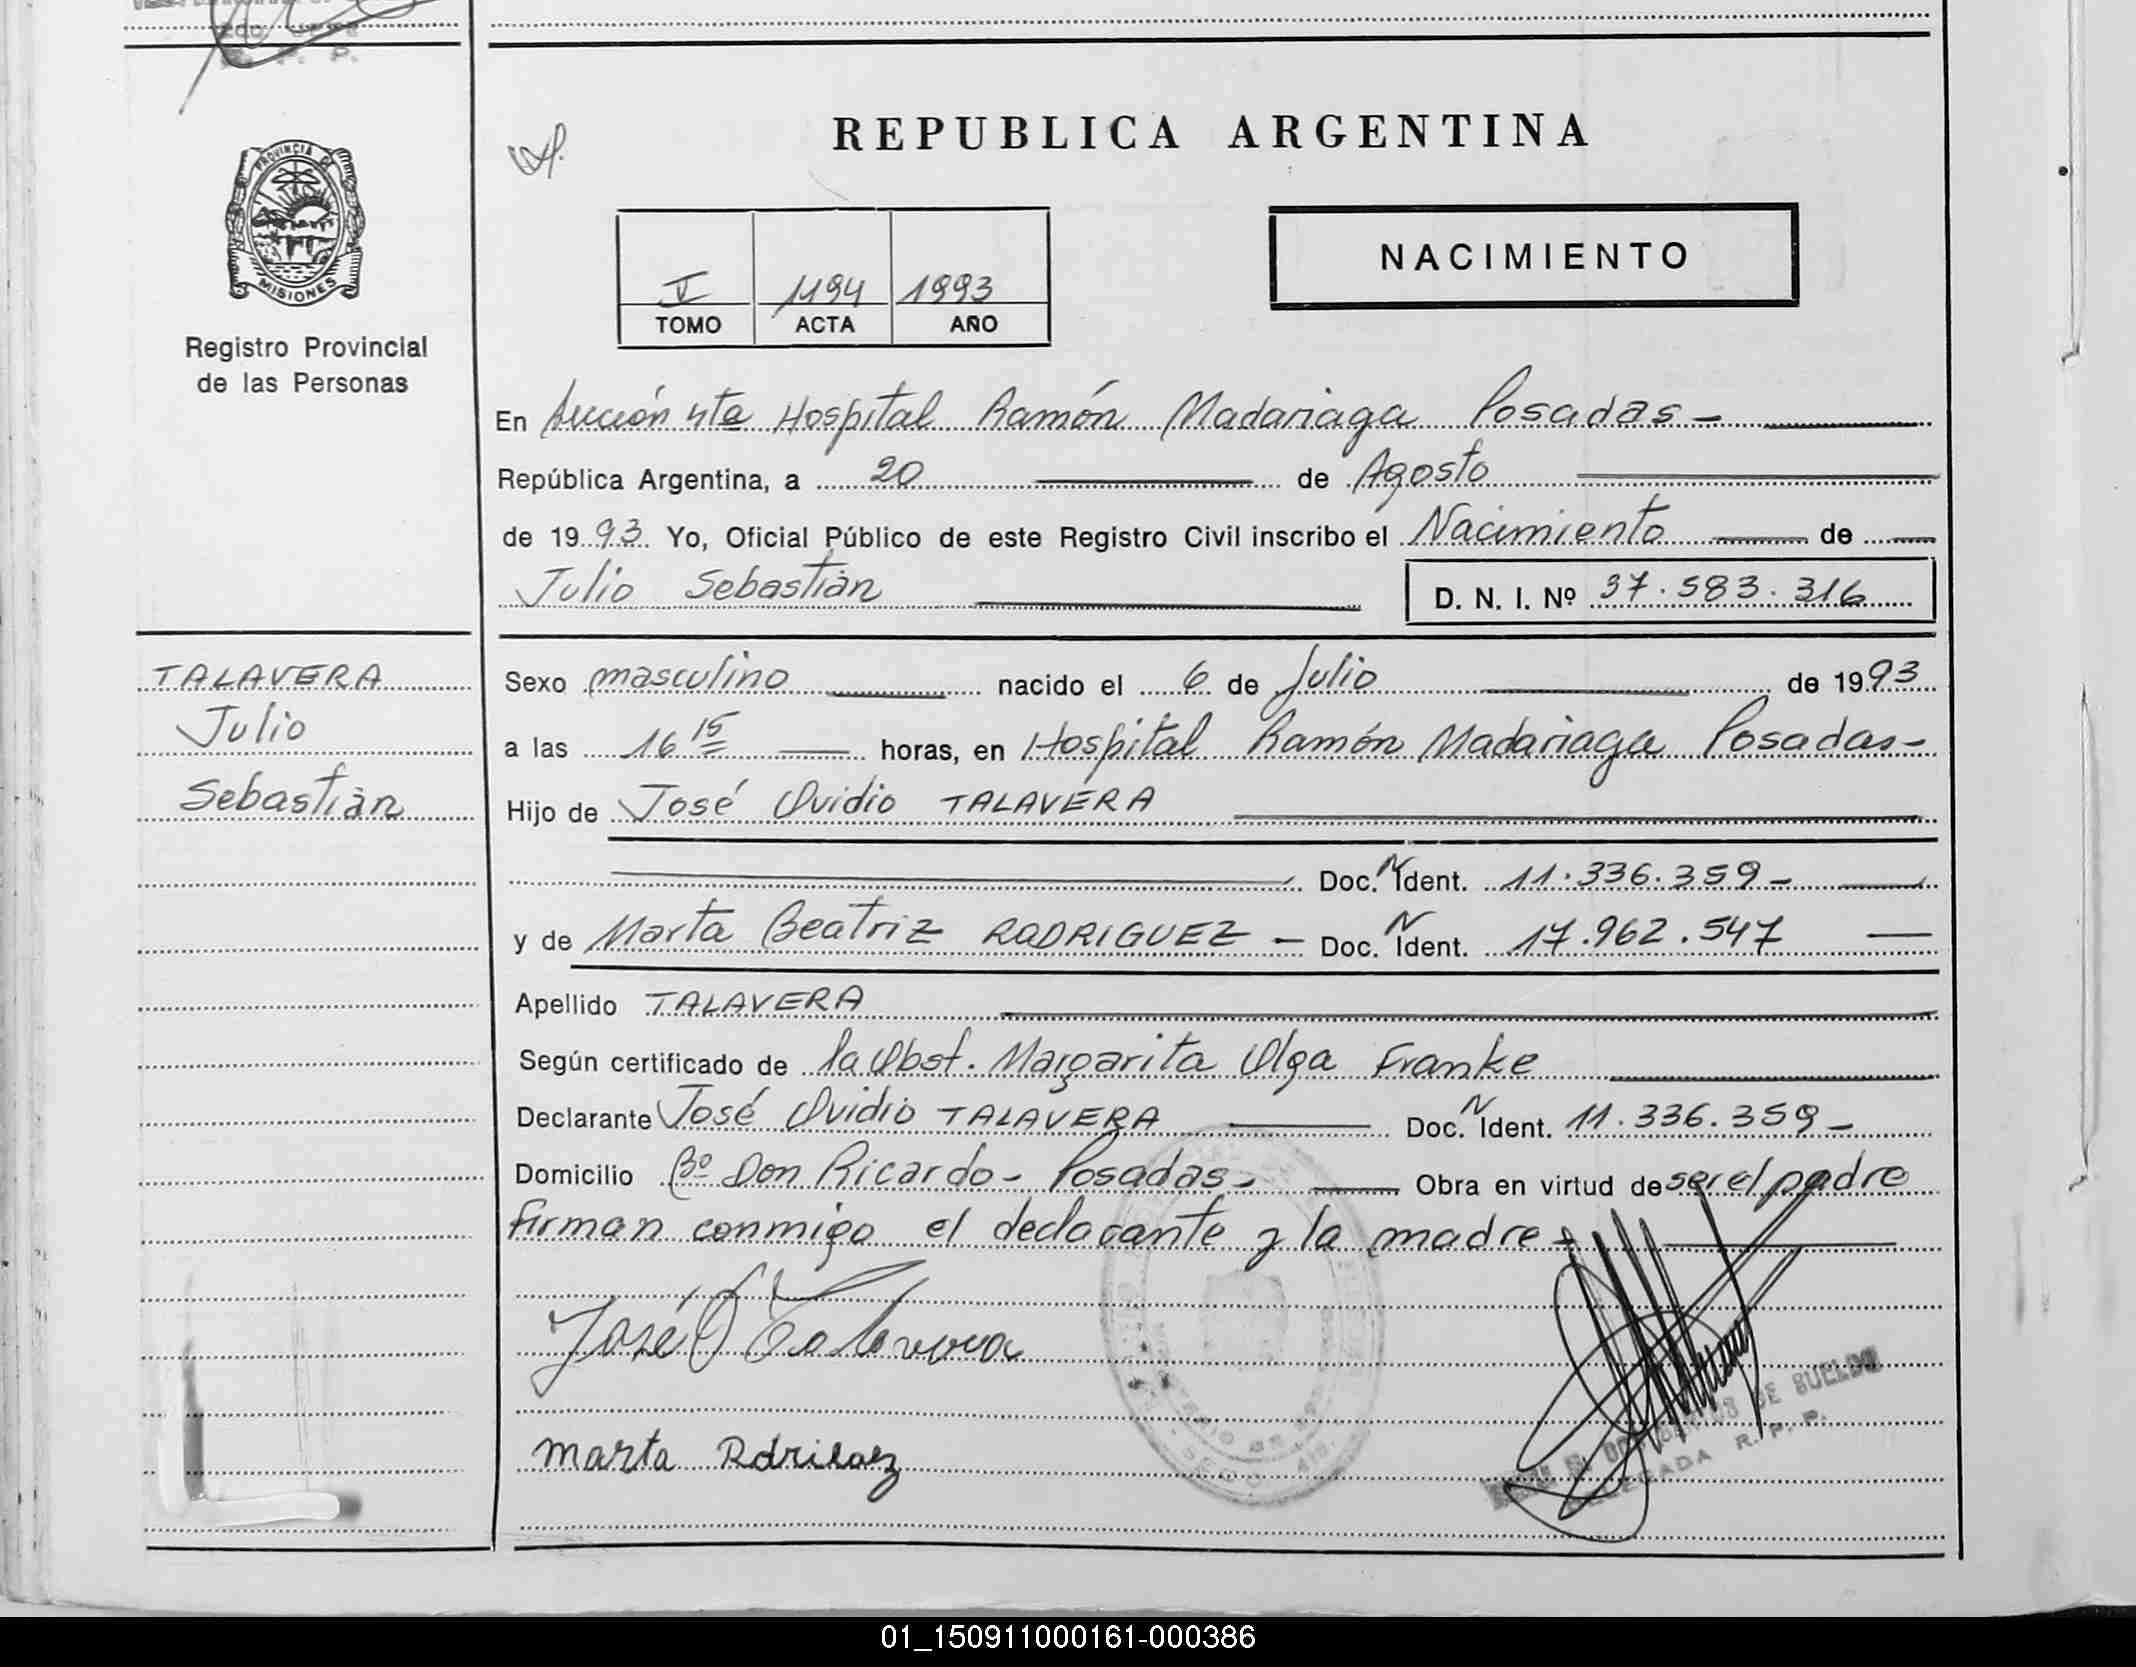 R. P. P.
REPUBLICA ARGENTINA
PROVINCIA DE
MISIONES
Registro Provincial
de las Personas
V 1194 1993
TOMO ACTA AÑO
NACIMIENTO
En Sección 4ta Hospital Ramón Madariaga Posadas -
República Argentina, a 20 de Agosto
de 1993 Yo, Oficial Público de este Registro Civil inscribo el Nacimiento de
Julio Sebastián D. N. I. Nº 37.583.316
TALAVERA
Julio
Sebastián
Sexo masculino nacido el 6 de Julio de 1993
a las 16 15 horas, en Hospital Ramón Madariaga Posadas-
Hijo de José Ovidio TALAVERA
Doc. N Ident. 11.336.359-
y de Marta Beatriz RODRIGUEZ - Doc. N Ident. 17.962.547
Apellido TALAVERA
Según certificado de la Obst. Margarita Olga Franke
Declarante José Ovidio TALAVERA Doc. N Ident. 11.336.359-
Domicilio Bº Don Ricardo - Posadas - Obra en virtud de ser el padre
firman conmigo el declarante y la madre -
José O Talavera
Marta Rdrilaez
DE SUELDO
DELEGADA R. P. P.
01_150911000161-000386